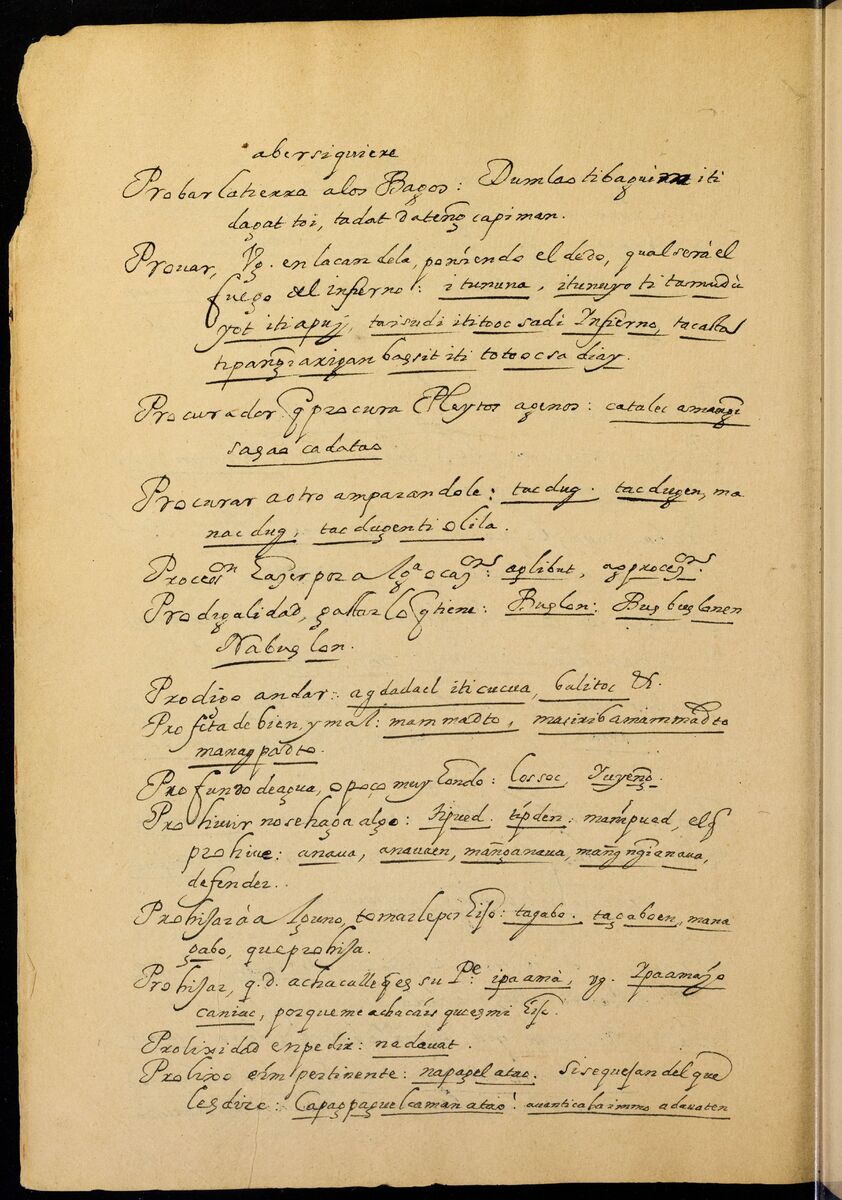 abersiquiere
Probar la tierra a los Bagos: Dumlao ti baguim iti
dagat toi, tadat dateng̃ capiman.
Prouar, Vg. en la candela, poniendo el dedo, qual será el
fuego del infierno: itununa, itunuyo ti tamudu
yot iti apuj, taisudi ititooc sadi Infierno, tacasta
tipang̃ arigan bassit iti totooc sa diay.
Procurador q̃ procura Pleytos agenos: catalec a mang̃i
sagao cadatao
Procurar a otro amparandole: tacdug. tacdugen, ma
nacdug, tacdugenti olila.
Proceon hazer por alga ocaon: aglibut, agproceon.
Prodigalidad, gastar lo q̃ tiene: Buslon: Busbuslonen
Nabuslon.
Prodigo andar: agdadael iti cucua, balitoc &.
Profeta de bien, y mal: mammadto, masirib a mammadto
managpadto.
Profundo de agua, o poço muy hondo: lossoc, Yuyeng̃.
Prohiuir no se haga algo: tipued. tipden: manipued, el q̃
prohiue: anaua, anauaen, mang̃anaua, mang̃ng̃ianaua,
defender.
Prohijar á alguno, tomarle por hijo: tagabo. tagaboen, mana
gabo, que prohija.
Prohijar, q.d. achacalle q̃ es su Pe: ipaamà, vg. Ypaamayo
caniac, porque me achacáis que es mi hijo.
Prolixidad en pedir: nadauat.
Prolixo e impertinente: napagel atao. Si se quejan del que
les dize: Capagpaguelcaman atao! auanticabaimmo adauaten